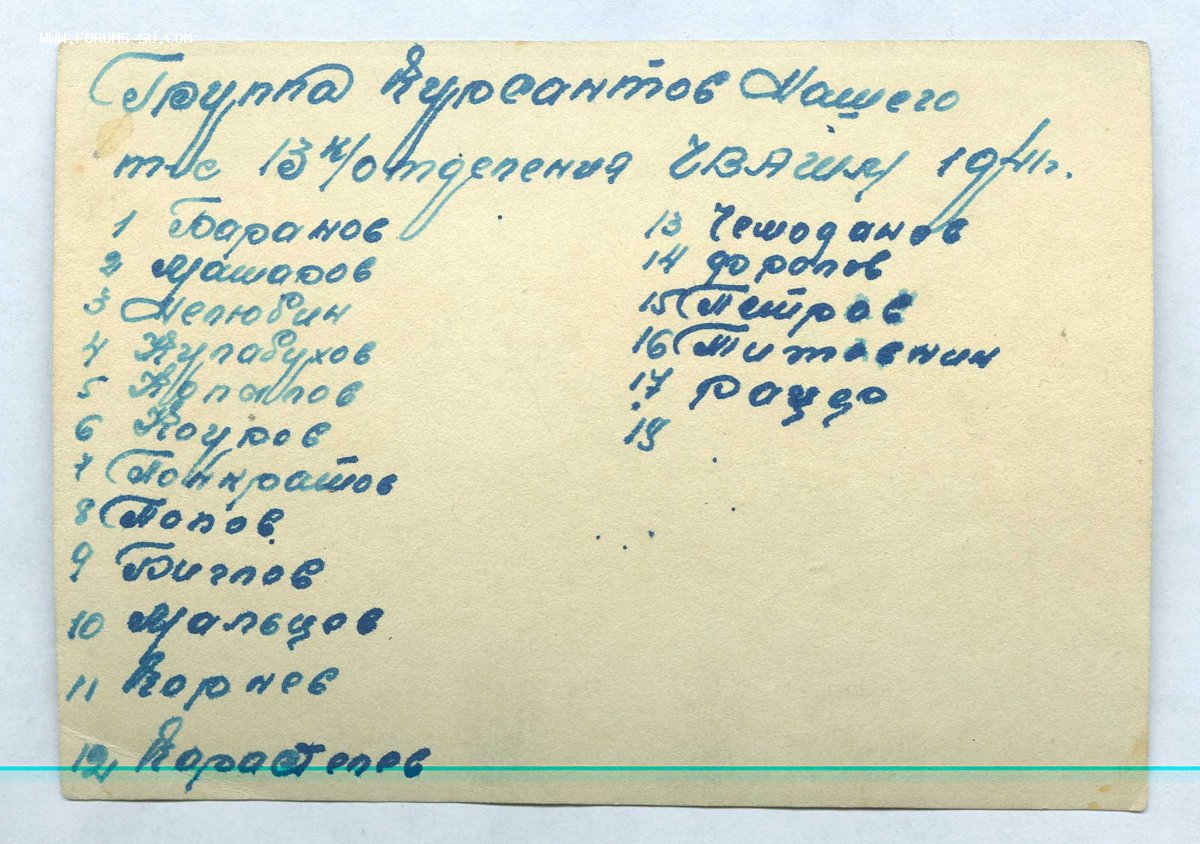 WWW.FORUMS-SU.COM
Группа Курсантов Нашего
т-с 13 к/отделения ЧВАШМ 1941г.
1 Баранов
2 Машаров
3 Нелюбин
4 Кулабухов
5 Копалов
6 Кауров
7 Панкратов
8 Попов
9 Биглов
10 Мальцов
11 Корнев
12 Карастелев
13 Чемоданов
14 Фролов
15 Петров
16 Титовнин
17 Рацдо
19